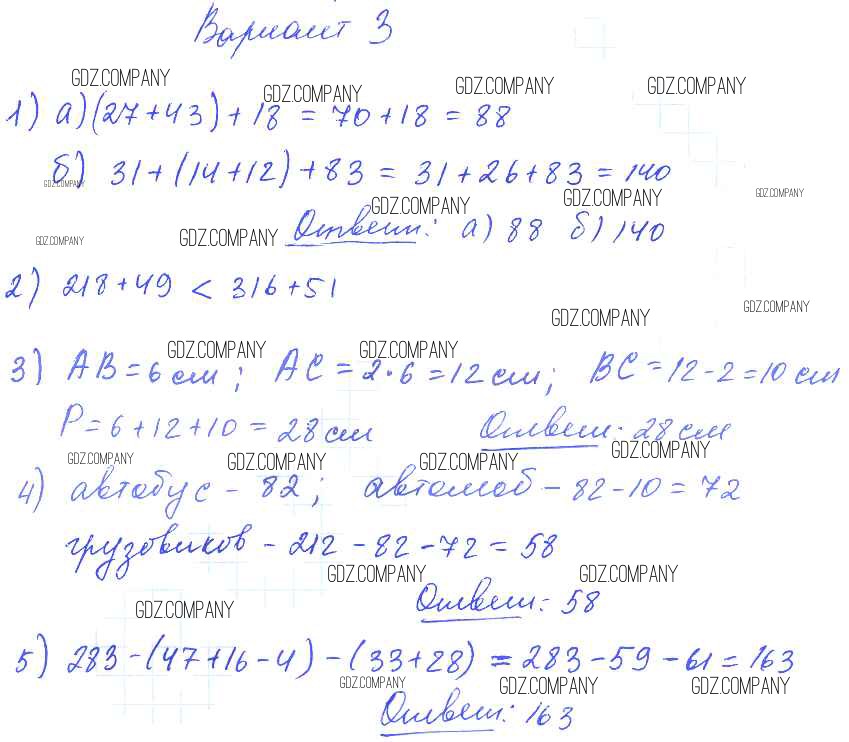 Вариант 3
GDZ.COMPANY GDZ.COMPANY GDZ.COMPANY GDZ.COMPANY
1) а) (27+43)+18 = 70+18 = 88
б) 31+(14+12)+83 = 31+26+83 = 140
GDZ.COMPANY GDZ.COMPANY GDZ.COMPANY GDZ.COMPANY
Ответ: а) 88 б) 140
GDZ.COMPANY GDZ.COMPANY
2) 218+49 < 316+51
GDZ.COMPANY GDZ.COMPANY
GDZ.COMPANY GDZ.COMPANY
3) АВ=6 см; АС=2·6=12 см; ВС=12-2=10 см
Р=6+12+10=28 см Ответ: 28 см
GDZ.COMPANY GDZ.COMPANY GDZ.COMPANY GDZ.COMPANY
4) автобус - 82; автомоб - 82-10=72
грузовиков - 212-82-72=58
GDZ.COMPANY GDZ.COMPANY
Ответ: 58
GDZ.COMPANY
5) 283-(47+16-4)-(33+28)=283-59-61=163
GDZ.COMPANY GDZ.COMPANY GDZ.COMPANY
Ответ: 163